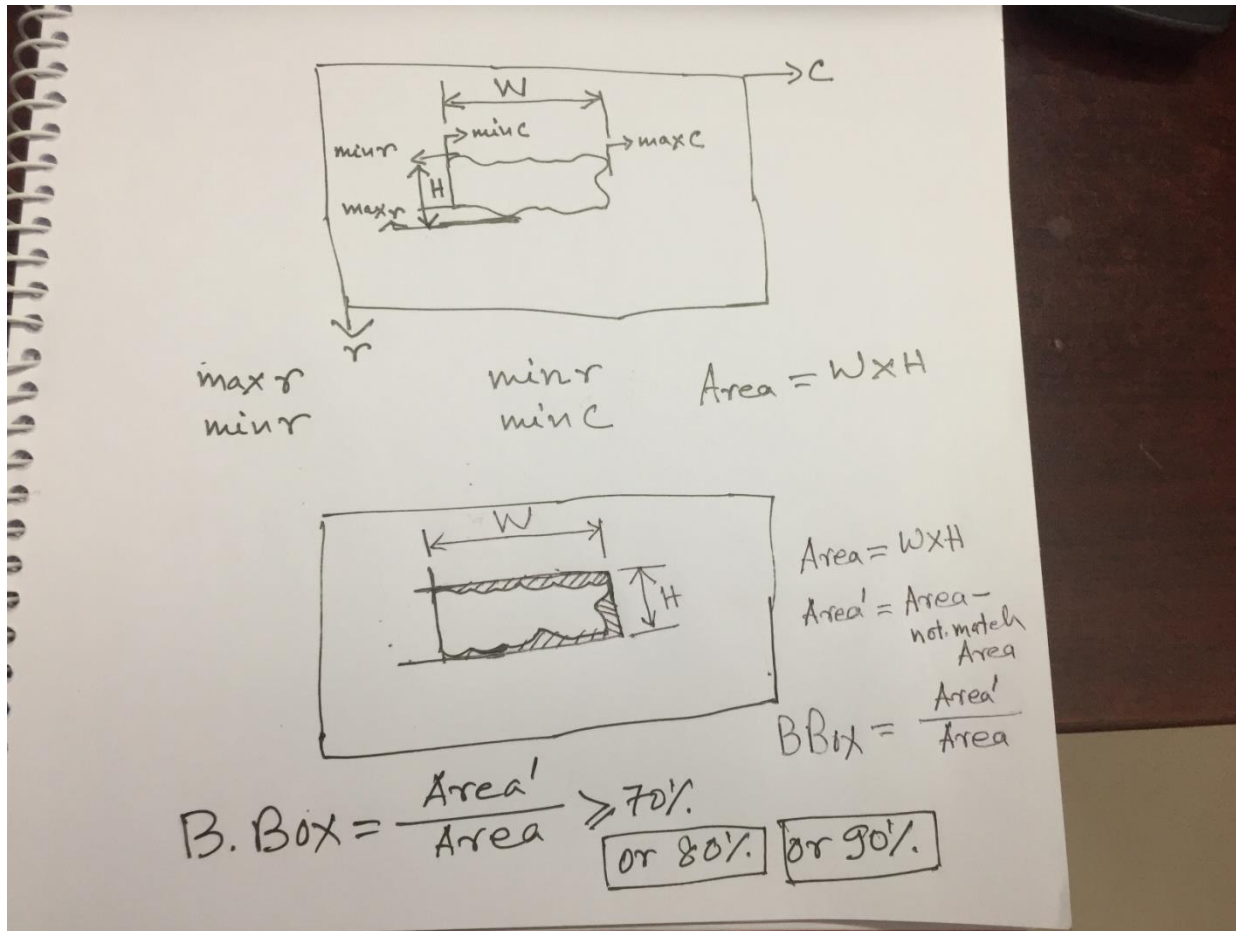 C
W
min C
min r
max C
H
max r
r
max r min r Area = W X H
min r min C
W
H
Area = W X H
Area' = Area -
not. match
Area
BBox = Area' / Area
B. Box = Area' / Area ⩾ 70%.
or 80%. or 90%.